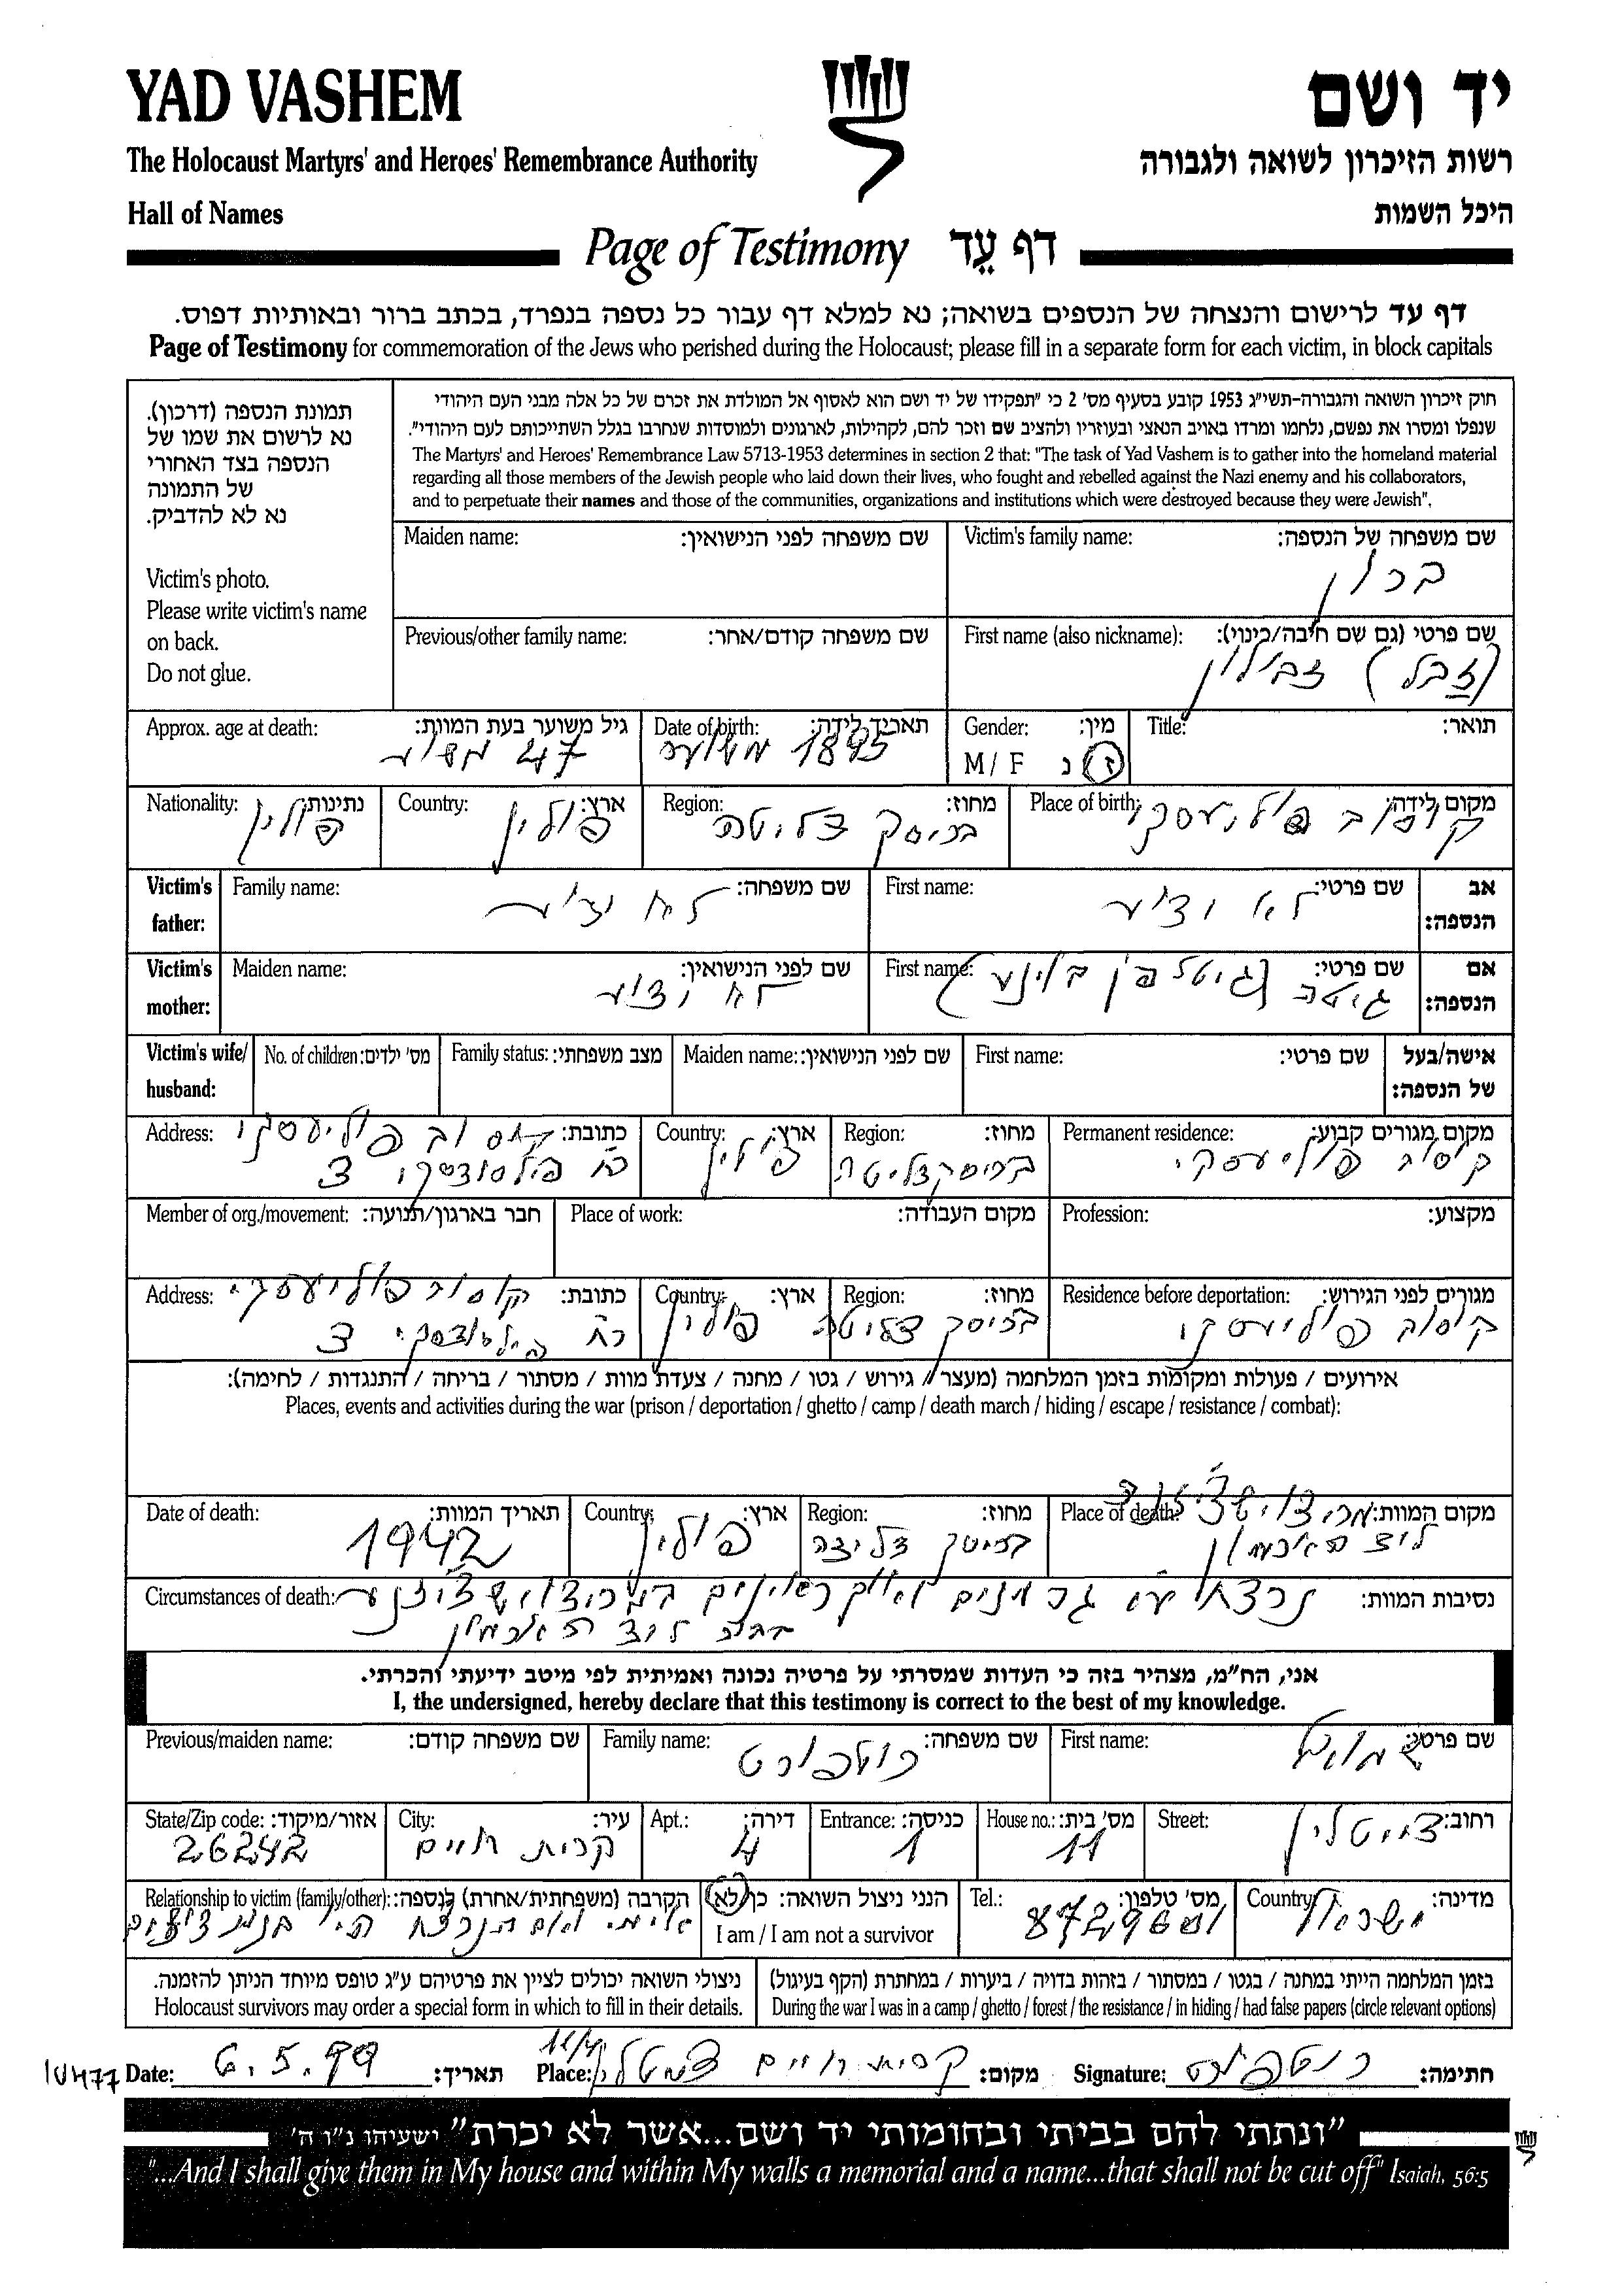 YAD VASHEM
יד ושם
The Holocaust Martyrs' and Heroes' Remembrance Authority
רשות הזיכרון לשואה ולגבורה
Hall of Names
היכל השמות
Page of Testimony דף עֵד
דף עד לרישום והנצחה של הנספים בשואה; נא למלא דף עבור כל נספה בנפרד, בכתב ברור ובאותיות דפוס.
Page of Testimony for commemoration of the Jews who perished during the Holocaust; please fill in a separate form for each victim, in block capitals
תמונת הנספה (דרכון).
נא לרשום את שמו של
הנספה בצד האחורי
של התמונה
נא לא להדביק.
Victim's photo.
Please write victim's name
on back.
Do not glue.
חוק זיכרון השואה והגבורה-תשי"ג 1953 קובע בסעיף מס' 2 כי "תפקידו של יד ושם הוא לאסוף אל המולדת את זכרם של כל אלה מבני העם היהודי
שנפלו ומסרו את נפשם, נלחמו ומרדו באויב הנאצי ובעוזריו ולהציב שם וזכר להם, לקהילות, לארגונים ולמוסדות שנחרבו בגלל השתייכותם לעם היהודי".
The Martyrs' and Heroes' Remembrance Law 5713-1953 determines in section 2 that: "The task of Yad Vashem is to gather into the homeland material
regarding all those members of the Jewish people who laid down their lives, who fought and rebelled against the Nazi enemy and his collaborators,
and to perpetuate their names and those of the communities, organizations and institutions which were destroyed because they were Jewish".
Victim's family name: שם משפחה של הנספה:
Maiden name: שם משפחה לפני הנישואין:
First name (also nickname): שם פרטי (גם שם חיבה/כינוי):
(זבל) זבולון
Previous/other family name: שם משפחה קודם/אחר:
Title: תואר:
Gender: מין:
M / F ז נ
Date of birth: תאריך לידה:
1895
Approx. age at death: גיל משוער בעת המוות:
47
Place of birth: מקום לידה:
קוסוב פולייעסקי
Region: מחוז:
בריסק דליטה
Country: ארץ:
פולין
Nationality: נתינות:
פולין
Victim's father: אב הנספה:
First name: שם פרטי:
לא ידוע
Family name: שם משפחה:
לא ידוע
Victim's mother: אם הנספה:
First name: שם פרטי:
גיטה
Maiden name: שם לפני הנישואין:
לא ידוע
Victim's wife/ husband: אישה/בעל של הנספה:
First name: שם פרטי:
Maiden name: שם לפני הנישואין:
Family status: מצב משפחתי:
No. of children: מס' ילדים:
Permanent residence: מקום מגורים קבוע:
קוסוב פולייעסקי
Region: מחוז:
בריסק דליטה
Country: ארץ:
פולין
Address: כתובת:
קוסוב פולייעסקי
רח פילסודסקי 3
Profession: מקצוע:
Place of work: מקום העבודה:
Member of org./movement: חבר בארגון/תנועה:
Residence before deportation: מגורים לפני הגירוש:
קוסוב פולייעסקי
Region: מחוז:
בריסק דליטה
Country: ארץ:
פולין
Address: כתובת:
קוסוב פולייעסקי
רח פילסודסקי 3
אירועים / פעולות ומקומות בזמן המלחמה (מעצר / גירוש / גטו / מחנה / צעדת מוות / מסתור / בריחה / התנגדות / לחימה):
Places, events and activities during the war (prison / deportation / ghetto / camp / death march / hiding / escape / resistance / combat):
Place of death: מקום המוות:
Region: מחוז:
Country: ארץ:
פולין
Date of death: תאריך המוות:
1942
Circumstances of death: נסיבות המוות:
נרצח ע"י גרמנים
אני, הח"מ, מצהיר בזה כי העדות שמסרתי על פרטיה נכונה ואמיתית לפי מיטב ידיעתי והכרתי.
I, the undersigned, hereby declare that this testimony is correct to the best of my knowledge.
First name: שם פרטי:
שמואל
Family name: שם משפחה:
רוטפורט
Previous/maiden name: שם משפחה קודם:
Street: רחוב:
צייטלין
House no.: מס' בית:
11
Entrance: כניסה:
1
Apt.: דירה:
4
City: עיר:
קרית חיים
State/Zip code: אזור/מיקוד:
26242
Country: מדינה:
ישראל
Tel.: מס' טלפון:
8729601
הנני ניצול השואה: כן / לא
I am / I am not a survivor
Relationship to victim (family/other): הקרבה (משפחתית/אחרת) לנספה:
בזמן המלחמה הייתי במחנה / בגטו / במסתור / בזהות בדויה / ביערות / במחתרת (הקף בעיגול)
During the war I was in a camp / ghetto / forest / the resistance / in hiding / had false papers (circle relevant options)
ניצולי השואה יכולים לציין את פרטיהם ע"ג טופס מיוחד הניתן להזמנה.
Holocaust survivors may order a special form in which to fill in their details.
Date: 6.5.99 תאריך:
Place: קרית חיים צייטלין 11/4 מקום:
Signature: רוטפורט חתימה:
"ונתתי להם בביתי ובחומותי יד ושם...אשר לא יכרת" ישעיהו נ"ו ה'
"...And I shall give them in My house and within My walls a memorial and a name...that shall not be cut off" Isaiah, 56:5